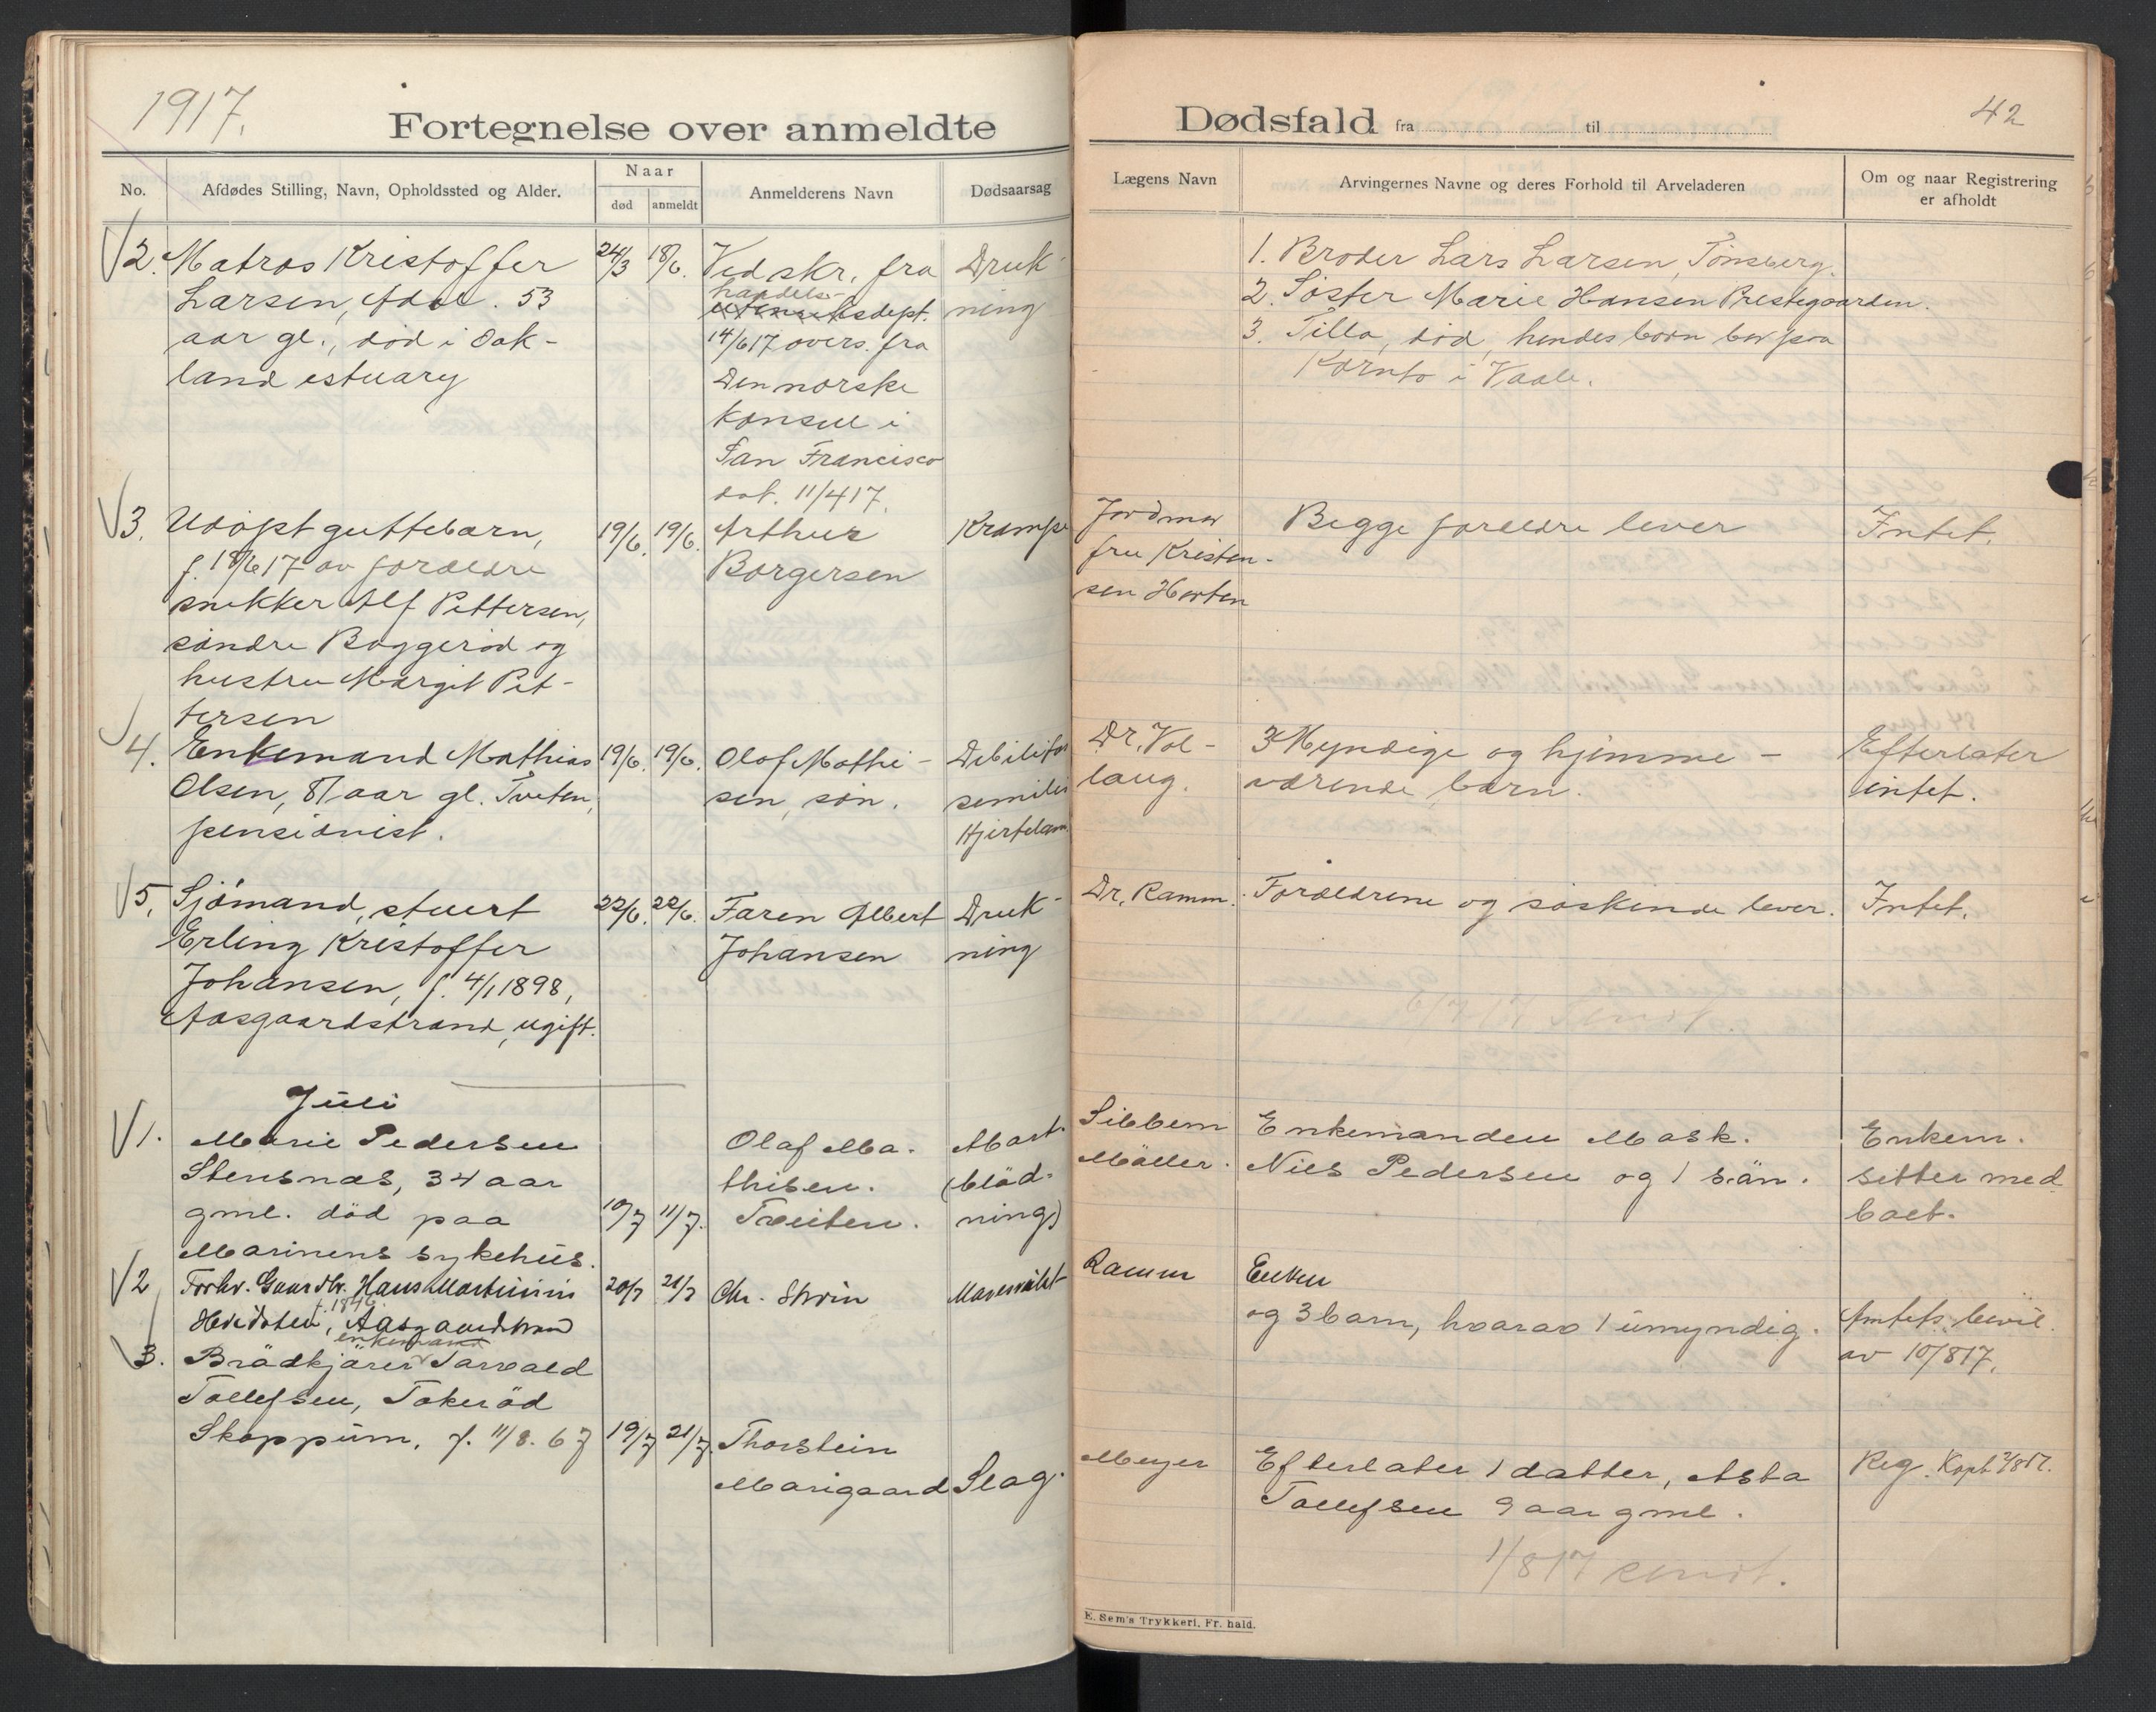 1917.
Fortegnelse over anmeldte
No.
Afdødes Stilling, Navn, Opholdssted og Alder.
Naar
død
anmeldt
Anmelderens Navn
Dødsaarsag
V2. Matros Kristoffer
Larsen, Adal. 53
aar gl., død i Oak-
land estuary
24/3
18/6.
Ved skr. fra
handels-
utenriksdept.
14/6 17 overs. fra
Den norske
konsul i
San Francisco
dat. 11/4 17.
Druk-
ning
V3. Udøpt guttebarn,
f. 18/6 17 av forældre
snekker Alf Pettersen,
søndre Baggerød og
hustru Margit Pet-
tersen
19/6.
19/6.
Arthur
Borgersen
Krampe
4. Enkemand Mathias
Olsen, 87 aar gl. Tveten,
pensionist.
19/6.
19/6.
Olaf Mathi-
sen, søn.
Debilitas
senilis
Hjertelam.
V5. Sjømand, stuert
Erling Kristoffer
Johansen, f. 4/1 1898,
Aasgaardstrand, ugift.
22/6.
22/6.
Faren Albert
Johansen
Druk-
ning
Juli
V1. Marie Pedersen
Stensnæs, 34 aar
gml. död paa
Marinens sykehus.
10/7
11/7.
Olaf Ma-
thisen.
Tveiten.
(blöd-
ning)
V2 Forhv. Gaardbr. Hans Martinius
f. 1846
Aasgaardstrand
20/7
21/7
Chr.
enkemand
V3. Brödkjörer Torvald
Tollefsen, Tokeröd
Skoppum, f. 11/8. 67
19/7
21/7.
Thorstein
Marigaard
Slag.
Dødsfald fra til
42
Lægens Navn
Arvingernes Navne og deres Forhold til Arveladeren
Om og naar Registrering
er afholdt
1. Broder Lars Larsen, Tönsberg.
2. Søster Marie Hansen Prestegaarden.
3. Tilla, død, hendes børn bor paa
i Vaale.
Jordmor
fru Kristen-
sen Horten
Begge forældre lever
Intet.
Dr. Vol-
laug.
3 Myndige og hjemme-
værende barn.
Efterlater
intet.
Dr. Ramm.
Forældrene og søskende lever.
Intet.
Sibbern
Möller.
Enkemanden Mask.
Nils Pedersen og 1 sön.
Enkem.
sitter med
boet.
Ramm
Enken
og 3 barn, hvorav 1 umyndig.
Amtets bevil.
av 10/8 17.
Meyer
Efterlater 1 datter, Asta
Tollefsen 9 aar gml.
Reg.
1/8 17 sendt.
E. Sem's Trykkeri, Fr. hald.